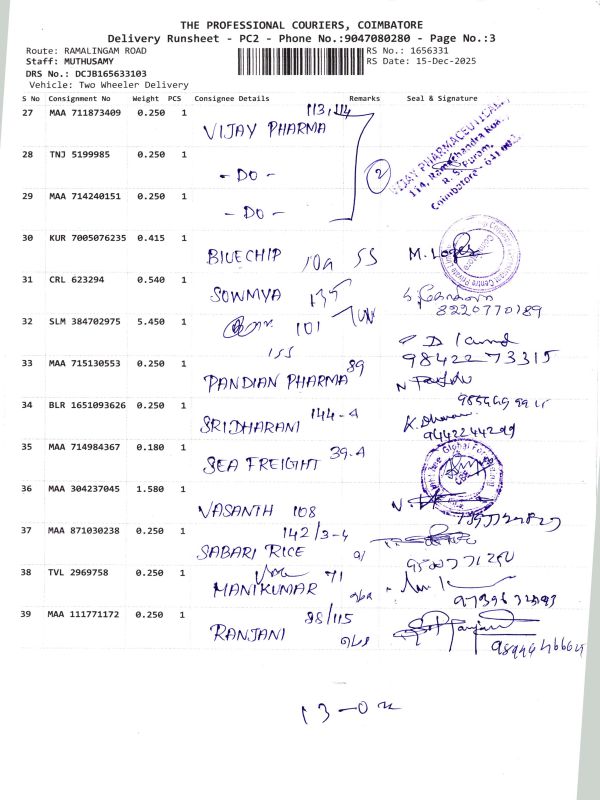 THE PROFESSIONAL COURIERS, COIMBATORE
Delivery Runsheet - PC2 - Phone No.:9047080280 - Page No.:3
Route: RAMALINGAM ROAD
RS No.: 1656331
Staff: MUTHUSAMY
RS Date: 15-Dec-2025
DRS No.: DCJB165633103
Vehicle: Two Wheeler Delivery
S No Consignment No Weight PCS Consignee Details Remarks Seal & Signature
27 MAA 711873409 0.250 1
113,114
VIJAY PHARMA
VIJAY PHARMACEUTICAL
114, Ramachandra Road,
R. S. Puram,
Coimbatore - 641 002.
28 TNJ 5199985 0.250 1
- DO -
2
29 MAA 714240151 0.250 1
- DO -
30 KUR 7005076235 0.415 1
BLUECHIP 109 SS
31 CRL 623294 0.540 1
SOWMYA 135
8220770189
32 SLM 384702975 5.450 1
101
155
9842273315
33 MAA 715130553 0.250 1
PANDIAN PHARMA 89
34 BLR 1651093626 0.250 1
SRIDHARANI 144-A
9442244299
35 MAA 714984367 0.180 1
SEA FREIGHT 39.A
36 MAA 304237045 1.580 1
VASANTH 108
37 MAA 871030238 0.250 1
142/3-4
SABARI RICE
38 TVL 2969758 0.250 1
MANIKUMAR 71
39 MAA 111771172 0.250 1
RANJANI 98/115